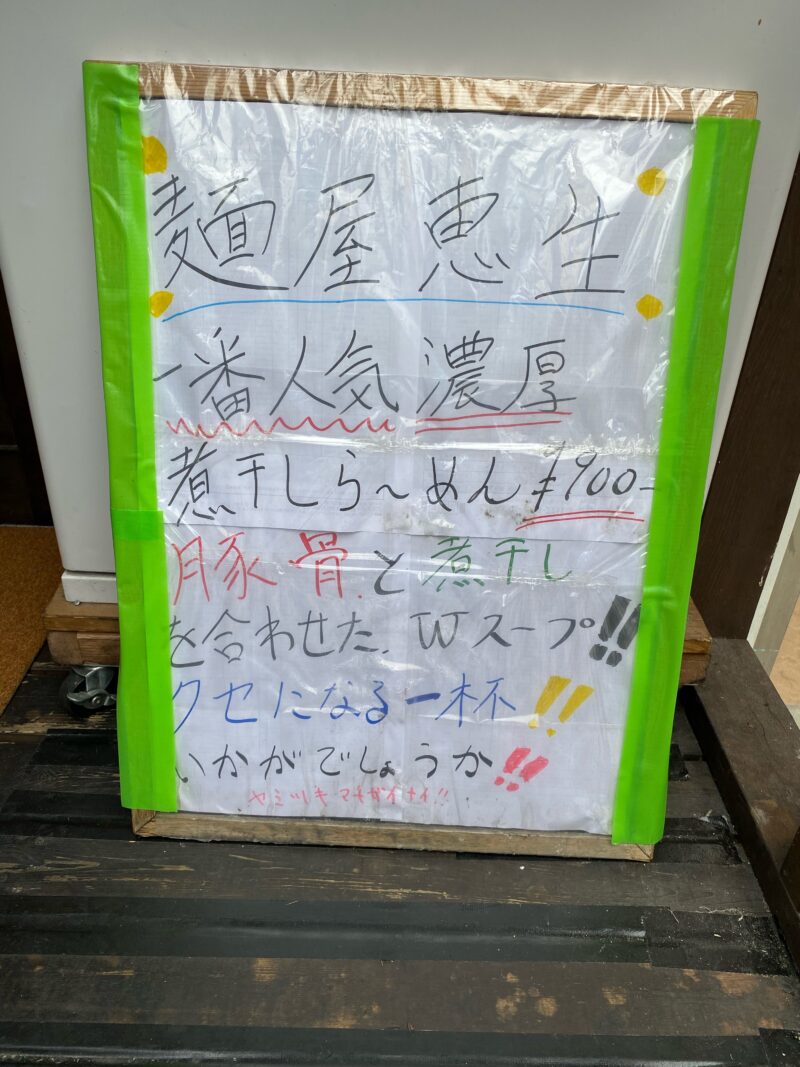 麺屋恵生
一番人気 濃厚
煮干しら～めん ¥900-
豚骨と煮干し
を合わせた、Wスープ!!
クセになる一杯!!
いかがでしょうか!!
ヤミツキマチガイナイ!!